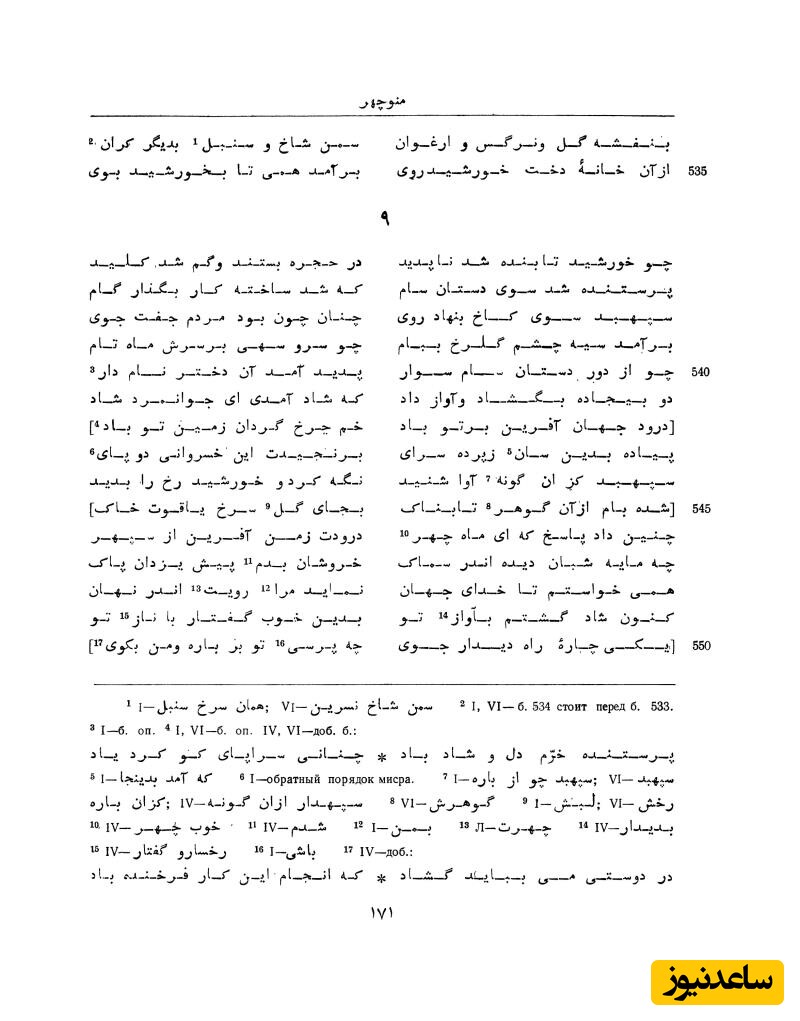 منوچهر
بنفشه گل ونرگس و ارغوان سمن شاخ و سنبل¹ بدیگر کران²
535 ازآن خانهٔ دخت خورشیدروی برآمد همی تا بخورشید بوی
۹
چو خورشید تابنده شد ناپدید در حجره بستند وگم شد کلید
پرستنده شد سوی دستان سام که شد ساخته کار بگذار گام
سپهبد سوی کاخ بنهاد روی چنان چون بود مردم جفت جوی
برآمد سیه چشم گلرخ ببام چو سرو سهی برسرش ماه تام
540 چو از دور دستان سام سوار پدید آمد آن دختر نام دار³
دو بیجاده بگشاد وآواز داد که شاد آمدی ای جوانمرد شاد
[درود جهان آفرین برتو باد خم چرخ گردان زمین تو باد⁴]
پیاده بدین سان⁵ زپرده سرای برنجیدت این خسروانی دو پای⁶
سپهبد کز ان گونه⁷ آوا شنید نگه کردو خورشید رخ را بدید
545 [شده بام ازآن گوهر⁸ تابناک بجای گل⁹ سرخ یاقوت خاک]
چنین داد پاسخ که ای ماه چهر¹⁰ درودت زمن آفرین از سپهر
چه مایه شبان دیده اندر سماک خروشان بدم¹¹ پیش یزدان پاک
همی خواستم تا خدای جهان نماید مرا¹² رویت¹³ اندر نهان
کنون شاد گشتم بآواز¹⁴ تو بدین خوب گفتار با ناز¹⁵ تو
550 [یکی چارهٔ راه دیدار جوی چه پرسی¹⁶ تو بر باره ومن بکوی¹⁷]
¹ I—همان سرخ سنبل; VI—سمن شاخ نسرین ² I, VI—б. 534 стоит перед б. 533.
³ I—б. оп. ⁴ I, VI—б. оп. IV, VI—доб. б.:
پرستنده خرّم دل و شاد باد * چنانی سراپای کو کرد یاد
⁵ I—که آمد بدینجا ⁶ I—обратный порядок мисра. ⁷ I—سپهبد چو از باره; VI—سپهبد
کزان باره; IV—سپهدار ازان گونه ⁸ VI—گوهرش ⁹ I—لبش; VI—رخش
¹⁰ IV—خوب چهر ¹¹ IV—شدم ¹² I—بمن ¹³ Л—چهرت ¹⁴ IV—بدیدار
¹⁵ IV—رخسارو گفتار ¹⁶ I—باشی ¹⁷ IV—доб.:
در دوستی می بباید گشاد * که انجام این کار فرخنده باد
۱۷۱
ساعدنیوز